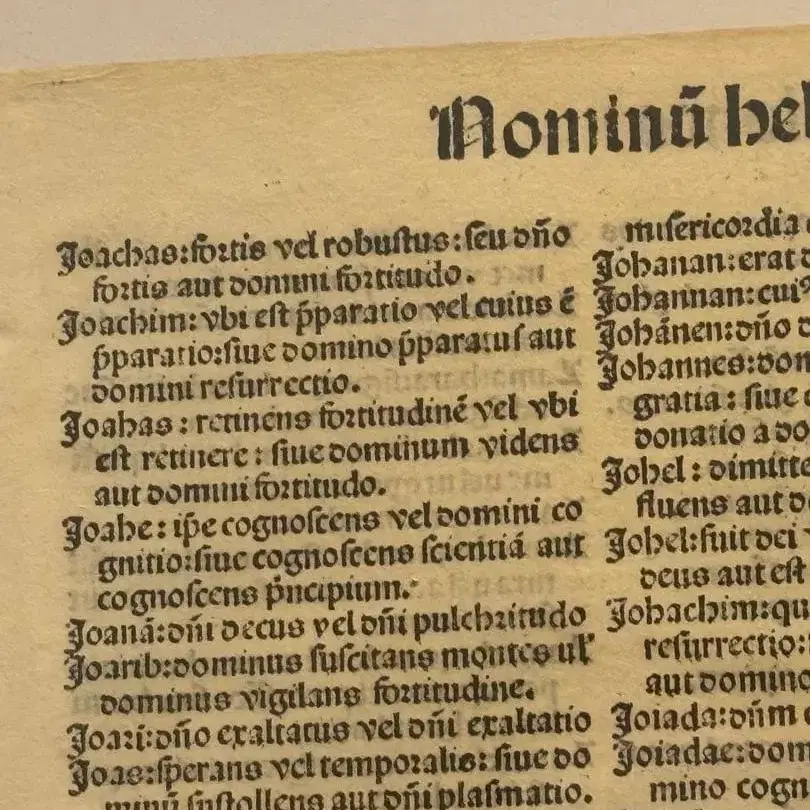 Nominū heb
Joachas:fortis vel robustus:seu dño
fortis aut domini fortitudo.
Joachim:vbi est p̄paratio vel cuius ē
p̄paratio:siue domino p̄paratus aut
domini resurrectio.
Joahas: retinens fortitudinē vel vbi
est retinere: siue dominum videns
aut domini fortitudo.
Joahe: ip̄e cognoscens vel domini co
gnitio:siue cognoscens scientiā aut
cognoscens p̄ncipium.
Joanā:dñi decus vel dñi pulchritudo
Joarib:dominus suscitans montes ul'
dominus vigilans fortitudine.
Joari:dño exaltatus vel dñi exaltatio
Joas:sperans vel temporalis: siue do
minū sustollens aut dñi plasmatio.
misericordia
Johanan:erat
Johannan:cui9
Johānen:dño
Johannes:dom
gratia: siue
donatio a do
Johel: dimitte
fluens aut
Johel:fuit dei
deus aut est
Johachim:qu
resurrectio:
aut domino
Joiada:dñm
Joiadae:dom
mino cogn